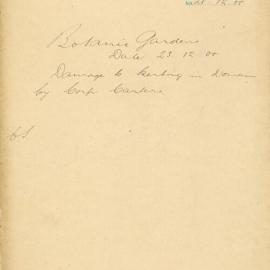 Botanic Gardens
Date 23.12.00
Damage to Kerbing in Domain
by Corp Carters